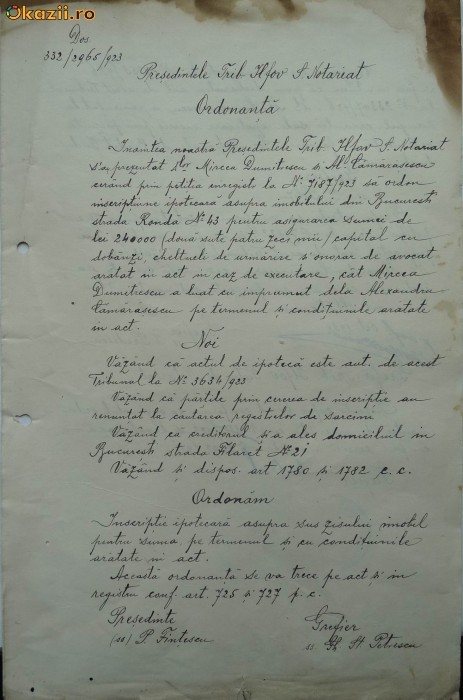 Okazii.ro
Dos
332/2965/923
Președintele Trib Ilfov S. Notariat
Ordonanță
Înaintea noastră Președintele Trib. Ilfov S. Notariat
s'a prezentat Mircea Dumitrescu și Al. Tămărăsescu
cerând prin petiția înregistr. la No 7187/923 să ordon
inscripțiune ipotecară asupra imobilului din București
strada Rondă No 43 pentru asigurarea sumei de
lei 240000 (două sute patru zeci mii) capital cu
dobânzi, cheltueli de urmărire și onorar de avocat
arătat în act în caz de executare, cât Mircea
Dumitrescu a luat cu împrumut dela Alexandru
Tămărăsescu pe termenul și condițiunile arătate
în act.
Noi
Văzând că actul de ipotecă este aut. de acest
Tribunal la No 3634/923
Văzând că părțile prin cererea de inscripție au
renunțat la căutarea registrelor de sarcini
Văzând că creditorul și-a ales domiciliul în
București strada Filaret No 21
Văzând și dispos. art 1780 și 1782 c. c.
Ordonăm
Inscripție ipotecară asupra sus zisului imobil
pentru suma, pe termenul și cu condițiunile
arătate în act.
Această ordonanță se va trece pe act și în
registru conf art. 725 și 727 p. c.
Președinte
(ss) P. Fințescu
Grefier
ss. Gh. St. Petrescu